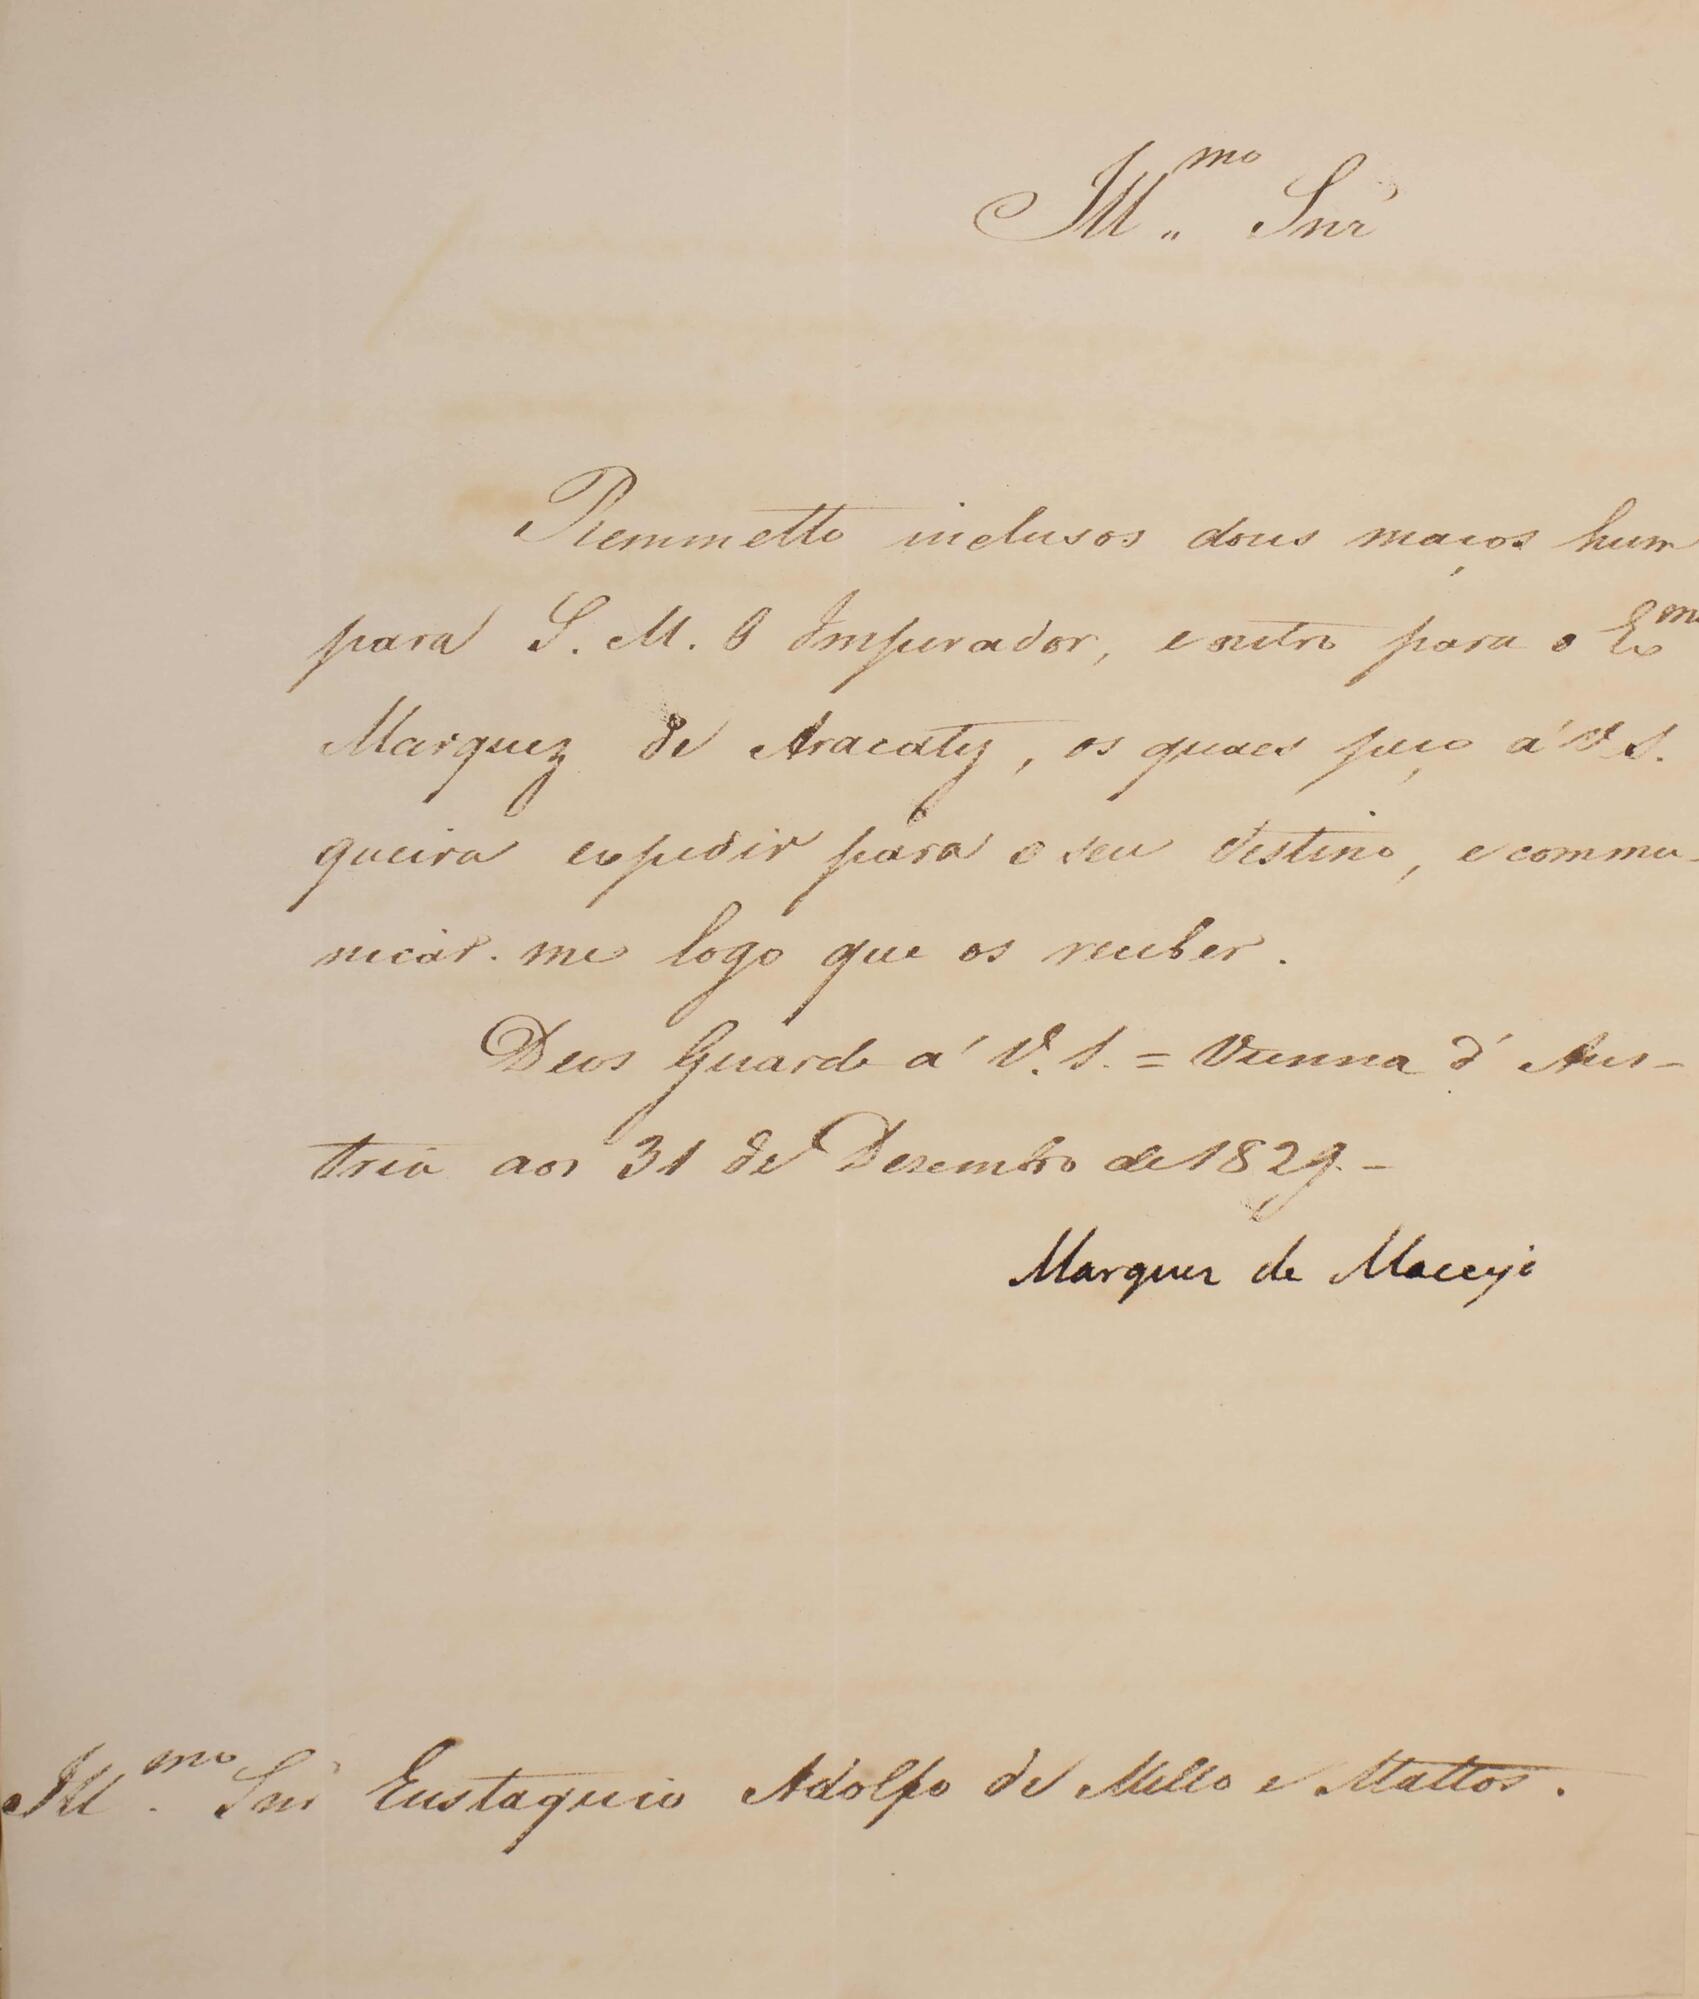 Ill.mo Snr
Remmetto inclusos dous maços hum
para S. M. O Imperador, e outro para o Exm
Marquez de Aracaty, os quaes peço á V S.
queira expedir para o seu destino, e commu-
nicar-me logo que os receber.
Deos Guarde á V. S. = Vienna d'Aus-
tria aos 31 de Dezembro de 1829.-
Marquez de Maceyó
Ill.mo Snr Eustaquio Adolfo de Mello e Mattos.